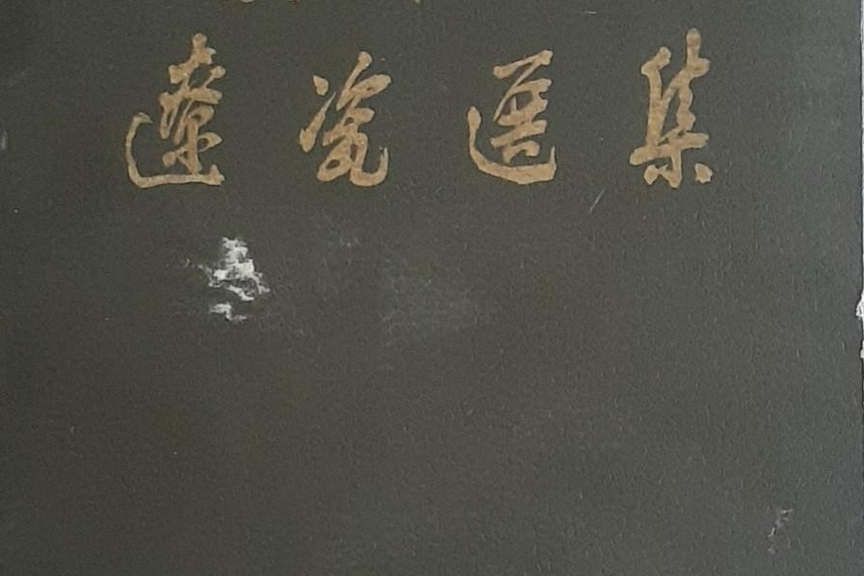 遼瓷選集